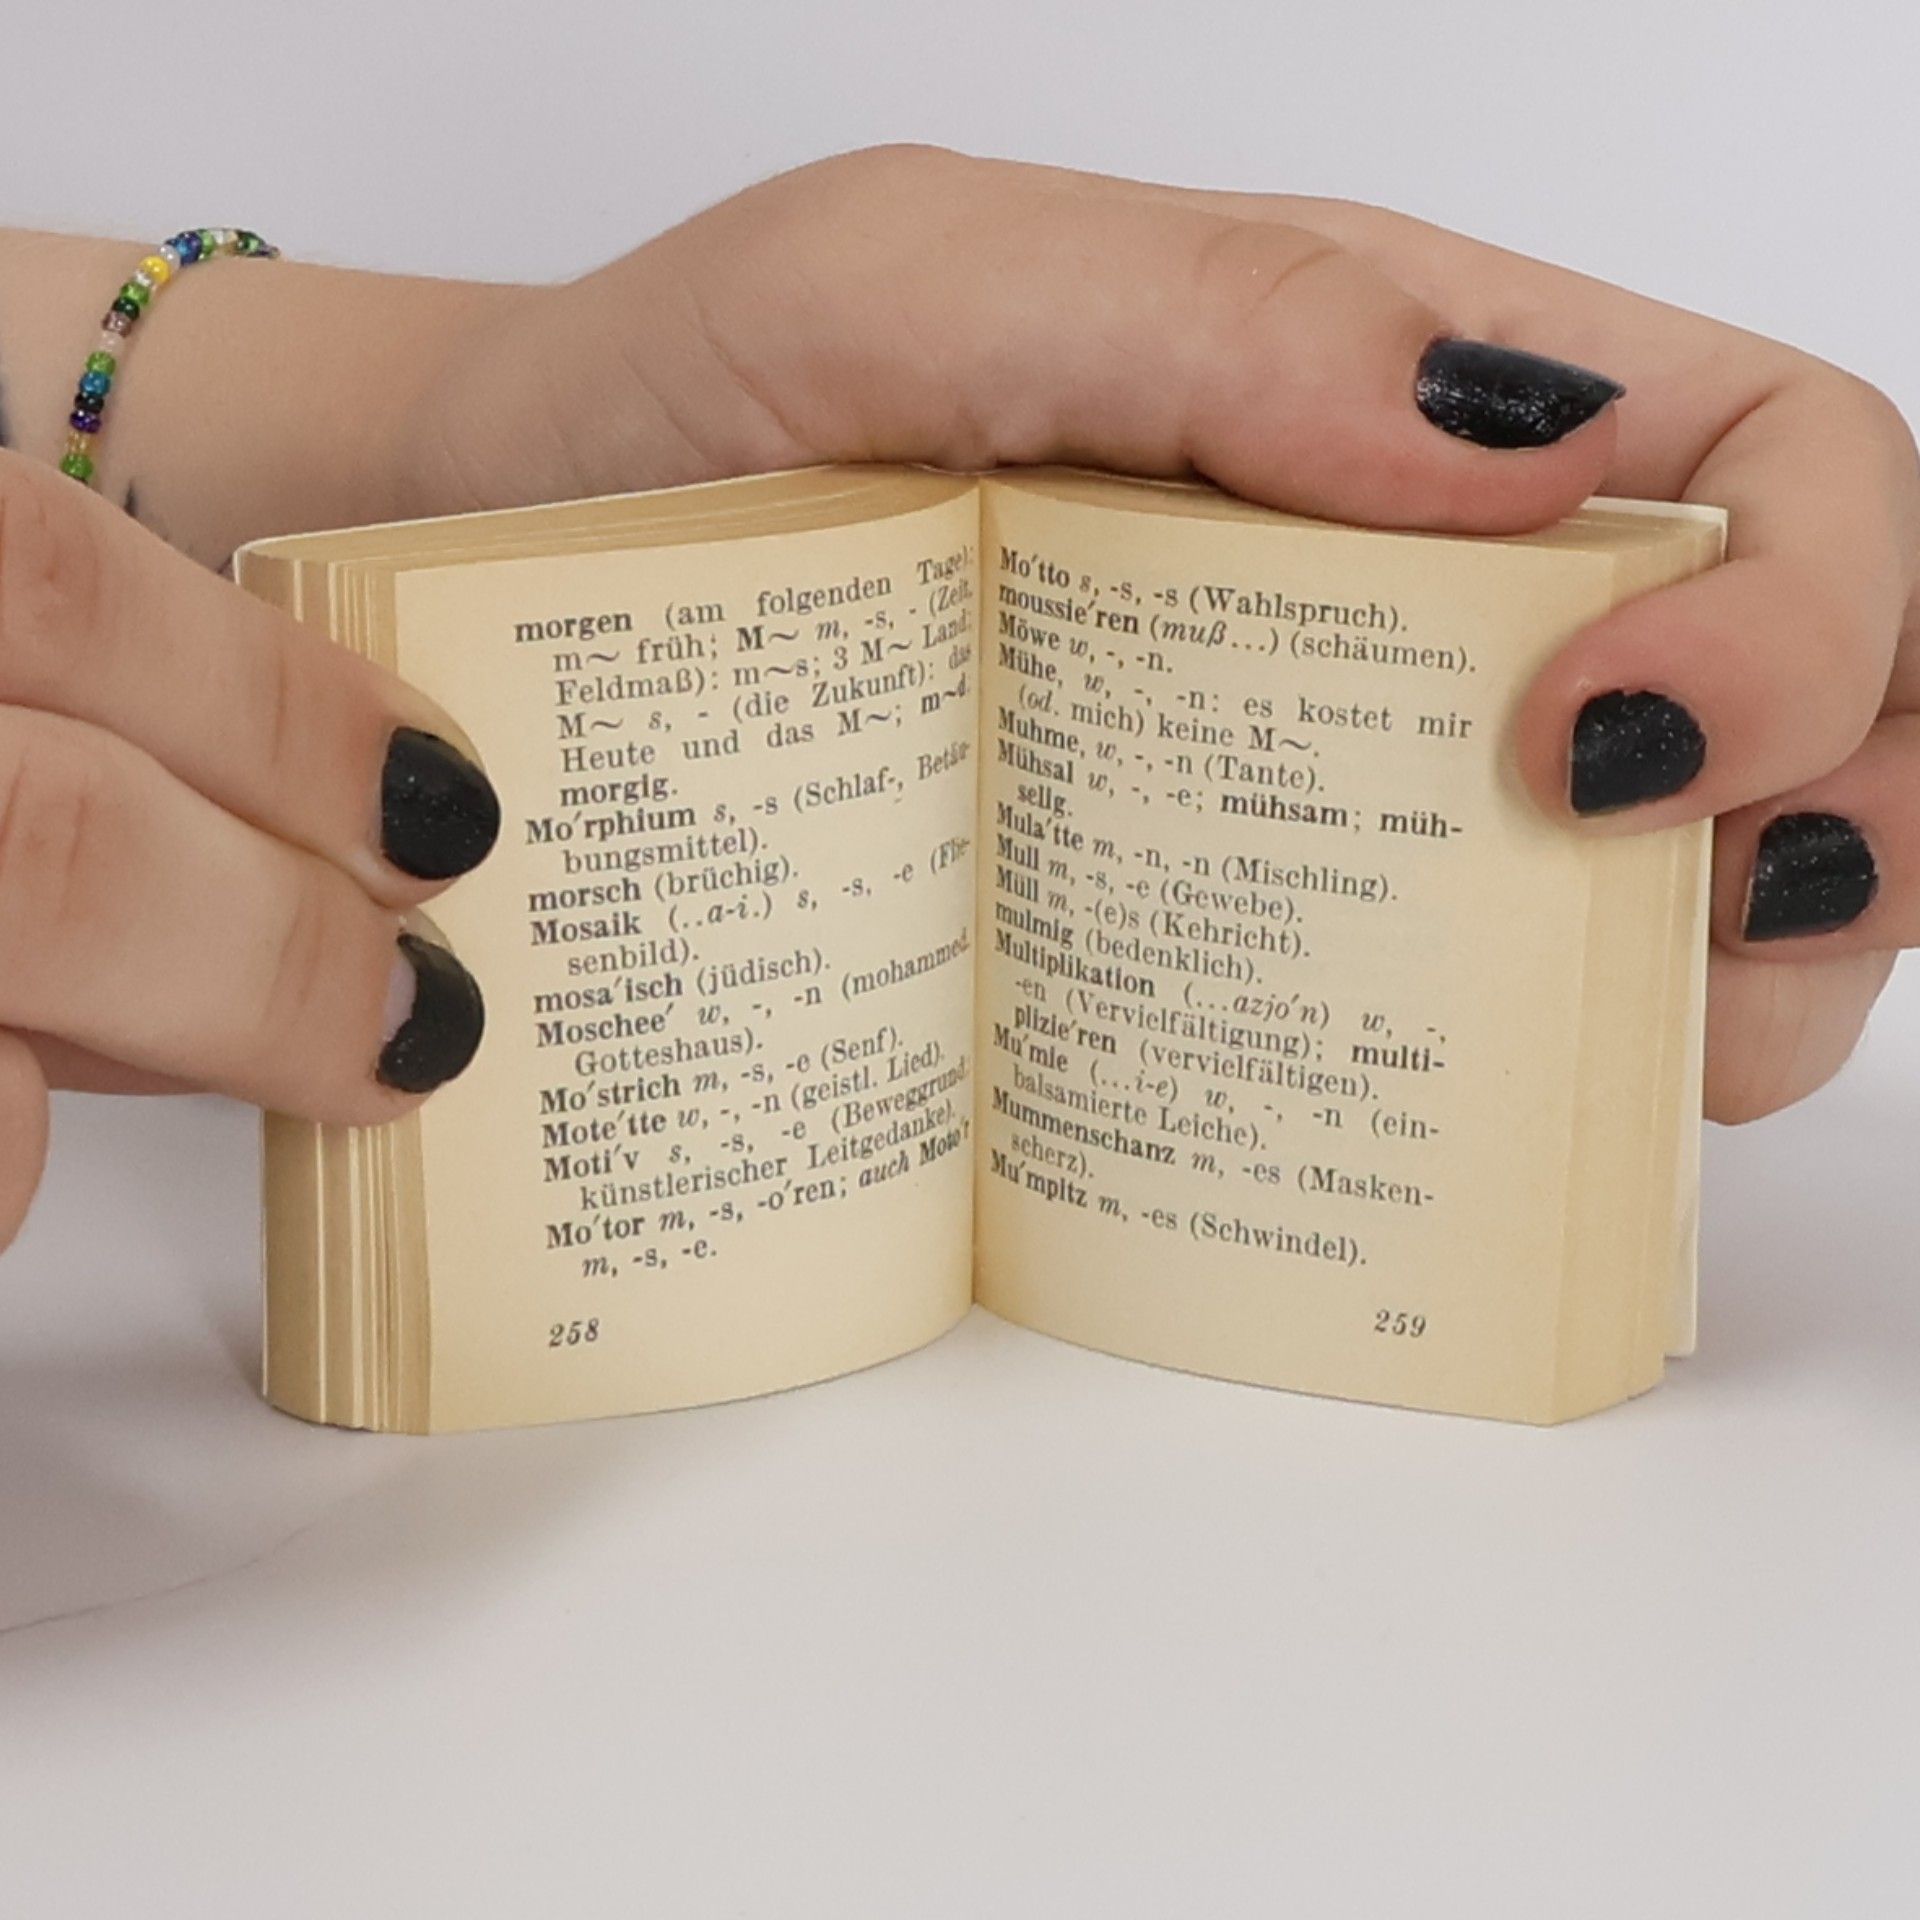 morgen (am folgenden Tage):
m~ früh; M~ m, -s, - (Zeit,
Feldmaß): m~s; 3 M~ Land;
M~ s, - (die Zukunft): das
Heute und das M~; m~d.
morgig.
Mo′rphium s, -s (Schlaf-, Betäu-
bungsmittel).
morsch (brüchig).
Mosaik (..a-i.) s, -s, -e (Flie-
senbild).
mosa′isch (jüdisch).
Moschee′ w, -, -n (mohammed.
Gotteshaus).
Mo′strich m, -s, -e (Senf).
Mote′tte w, -, -n (geistl. Lied).
Moti′v s, -s, -e (Beweggrund;
künstlerischer Leitgedanke).
Mo′tor m, -s, -o′ren; auch Moto′r
m, -s, -e.
258
Mo′tto s, -s, -s (Wahlspruch).
moussie′ren (muß...) (schäumen).
Möwe w, -, -n.
Mühe, w, -, -n: es kostet mir
(od. mich) keine M~.
Muhme, w, -, -n (Tante).
Mühsal w, -, -e; mühsam; müh-
selig.
Mula′tte m, -n, -n (Mischling).
Mull m, -s, -e (Gewebe).
Müll m, -(e)s (Kehricht).
mulmig (bedenklich).
Multiplikation (...azjo′n) w, -,
-en (Vervielfältigung); multi-
plizie′ren (vervielfältigen).
Mu′mie (...i-e) w, -, -n (ein-
balsamierte Leiche).
Mummenschanz m, -es (Masken-
scherz).
Mu′mpitz m, -es (Schwindel).
259